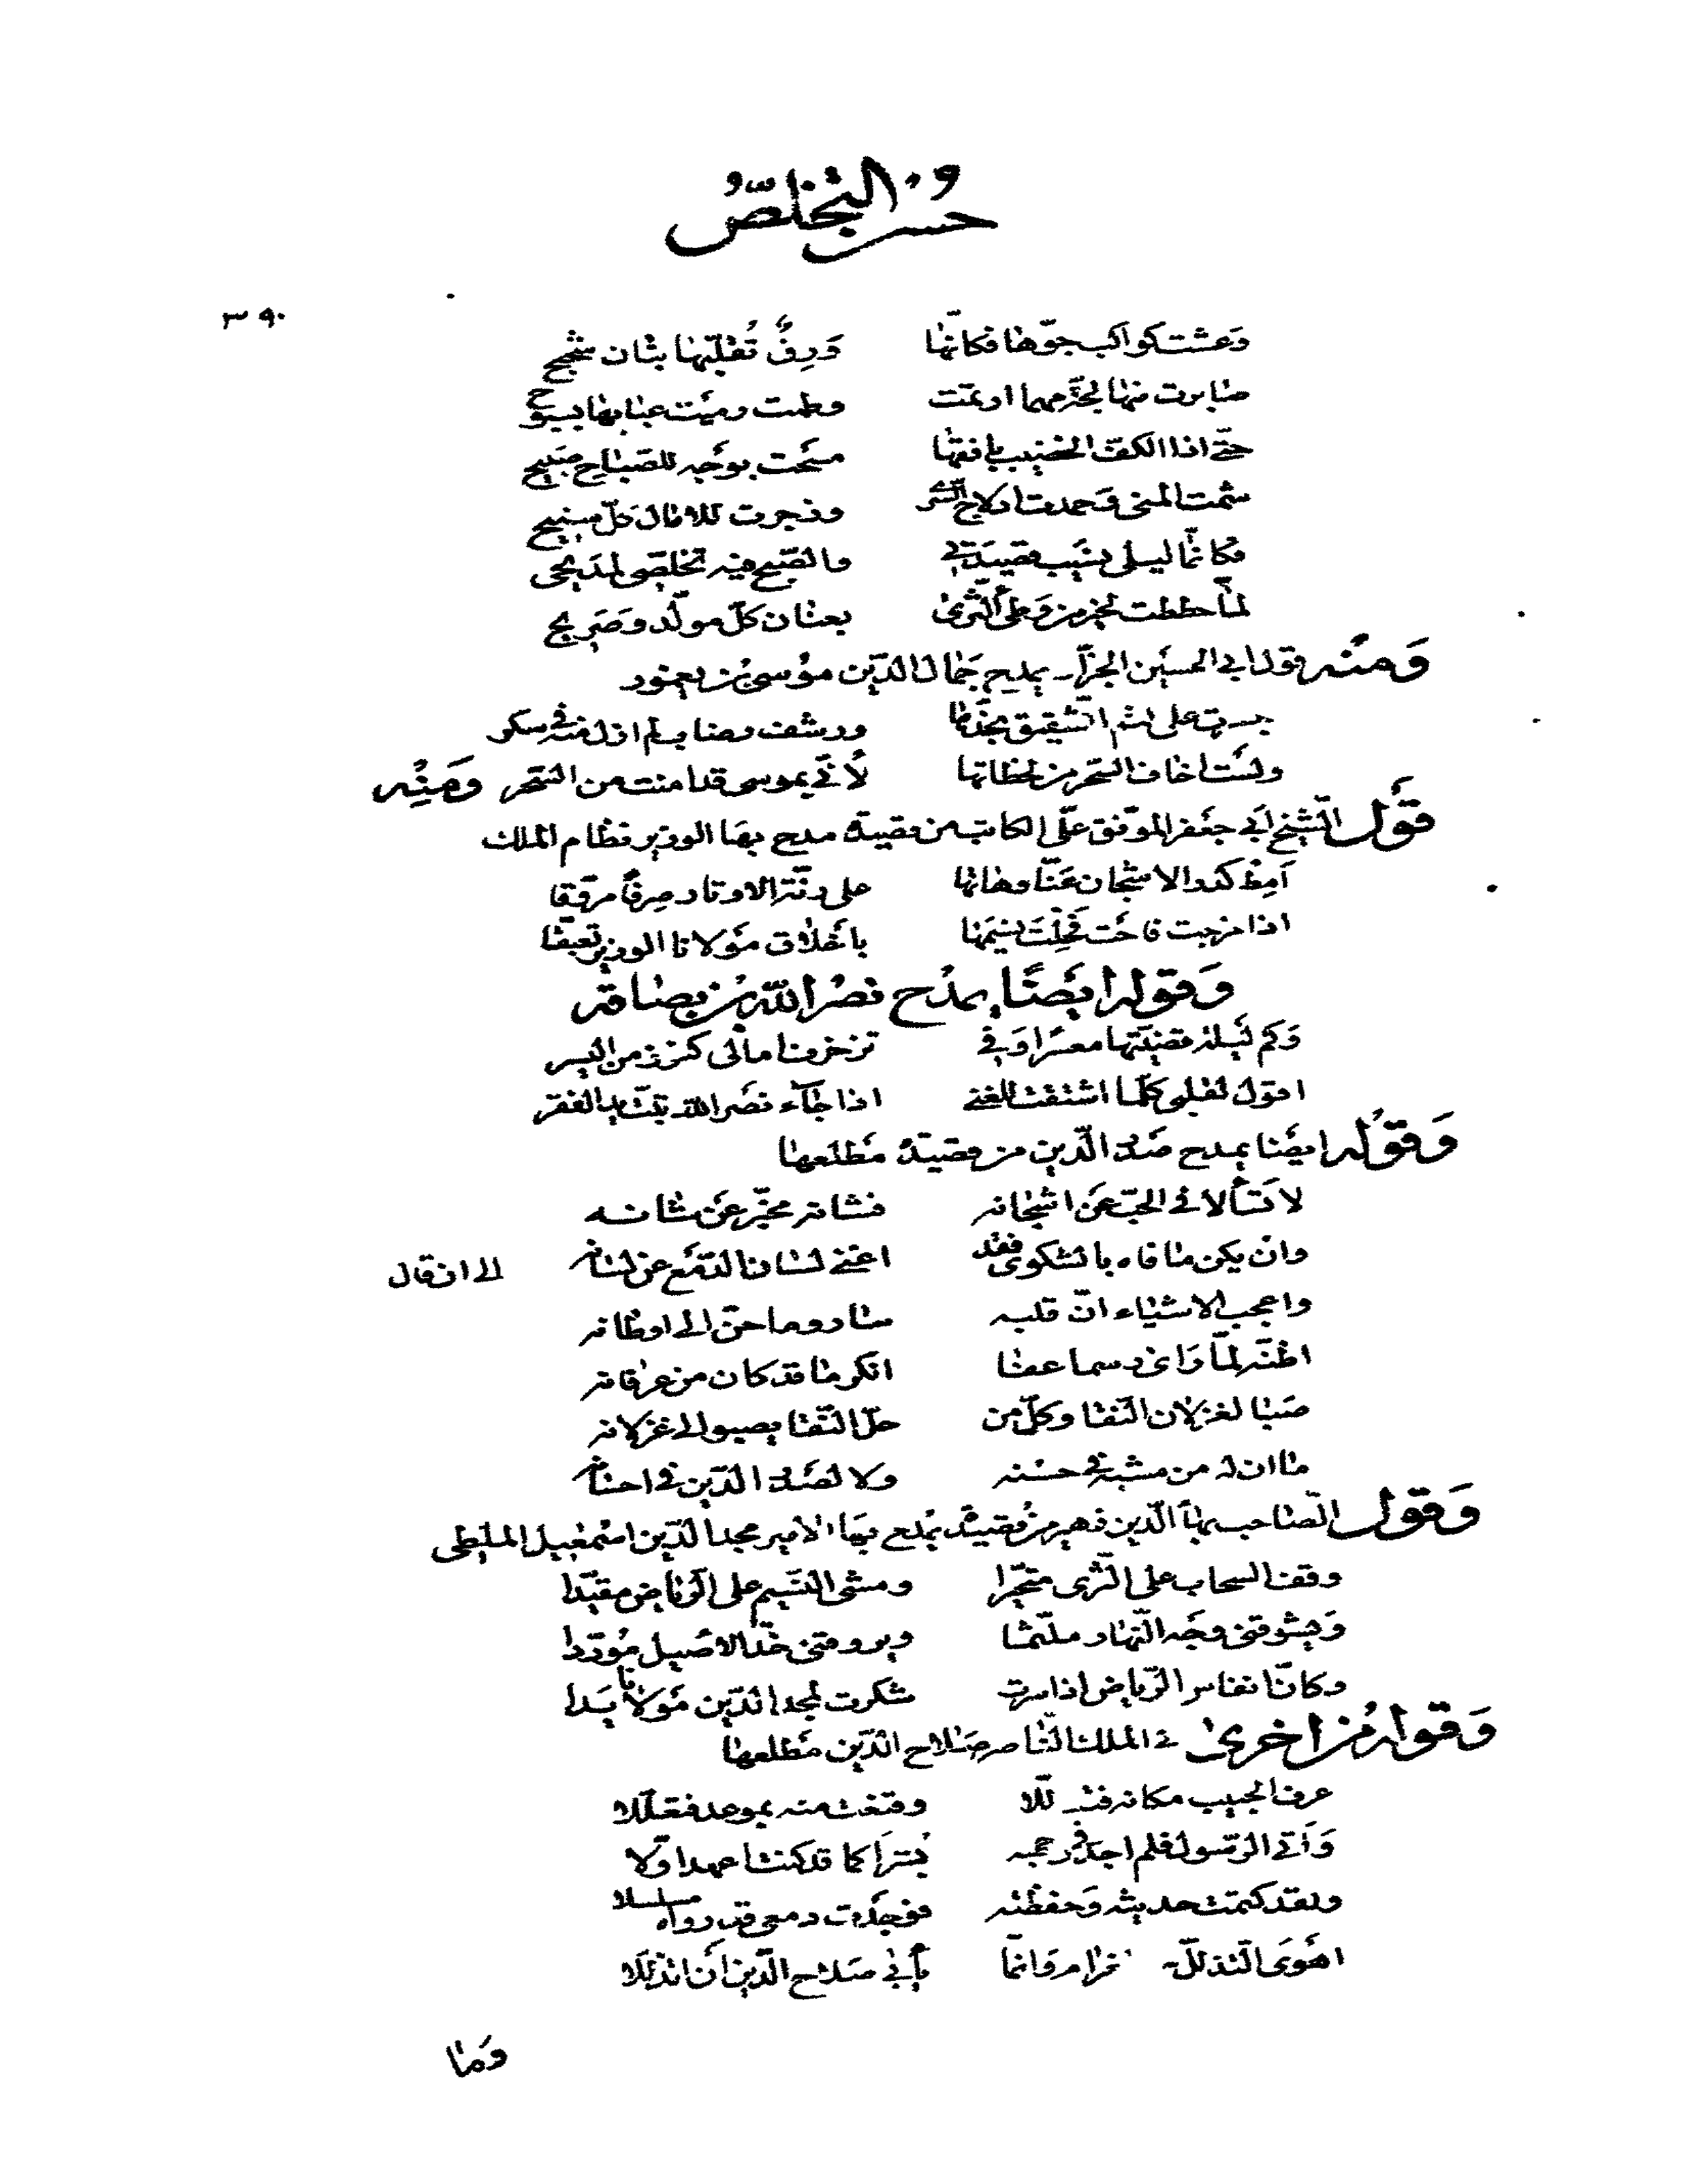 حسن التخلّص
٣٩٠
وعشت كواكب جوّها فكانّها ورق تقلّبها بنان شحيح
صابرت منها لجّة مهما ارتمت وطمت رميت عبابها بسبوح
حتّى اذا الكفّ الخضيب بافقها مسحت بوجه للصباح صبيح
شمت المنى وحمدت ادلاج السرى وزجرت للامال كلّ سنيح
فكانّما ليلى نسيب قصيدتي والصّبح فيه تخلّصى لمديحى
لمّا حططت لخير من وطئ الثّرى بعنان كلّ مولّد وصريح
ومنه قول ابى الحسين الجزّار يمدح جمال الدّين موسى بن يعمور
جسرت على لثم الشّقيق بخدّها ورشف رضاب لم ازل منه في سكر
ولست اخاف السّحر من لحظاتها لأنّي بموسى قد امنت من السّحر ومنه
قول الشّيخ ابي جعفر الموفّق علّى الكاتب من قصيدة مدح بها الوزير نظام الملك
اَمِط كدر الاشجان عنّا وهاتها على رنّة الاوتار صرفًا مروّقا
اذا مزجت فاحت فخلت نسيمها باخلاق مولانا الوزير تعبّقا
وقوله ايضًا يمدح نصر الله بن بصاقه
وكم ليلة قضيتها معسرًا وفي تزخرفنا مالى كنوز من اليسر
اقول لقلبى كلّما اشتقت للغنى اذا جاء نصر الله تبّت يد الفقر
وقوله ايضًا يمدح صدر الدّين من قصيدة مطلعها
لا تسألا في الحبّ عن اشجانه فشانه مخبّر عن شانه
وان يكن ما فاه بالشكوى فقد اغنى لسان الدّمع عن لسانه الى ان قال
واعجب الاشياء انّ قلبه سار وما حنّ الى اوطانه
اظنّه لمّا راى رسما عفا انكر ما قد كان من عرفانه
صبا لغزلان النّقا وكلّ من حلّ النّقا يصبو الى غزلانه
ما ان له من مشبه في حسنه ولا لصدر الدّين في احسانه
وقول الصّاحب بهاء الدّين زهير من قصيدة يمدح بها الامير مجد الدّين اسمعيل الملطى
وقف السحاب على الثّرى متحيّرا ومشى النّسيم على الرّياض مقيّدا
ويشوقنى وجه النّهار ملثّما ويروقنى خدّ الاصيل مورّدا
وكانّ انفاس الرّياض اذا سرت شكرت لمجد الدّين مولانا يدا
وقوله من اخرى في الملك النّاصر صلاح الدّين مطلعها
عرف الحبيب مكانه فتدلّلا وقنعت منه بموعد فتعلّلا
وأتى الرّسول فلم اجد في وجهه بشرا كما قد كنت اعهد اوّلا
ولقد كتمت حديثه وحفظته فوجدت دمعى قد رواه مسلسلا
اهوى التّذلّل غرام وانّما يأبى صلاح الدّين أن اتذلّلا
وما